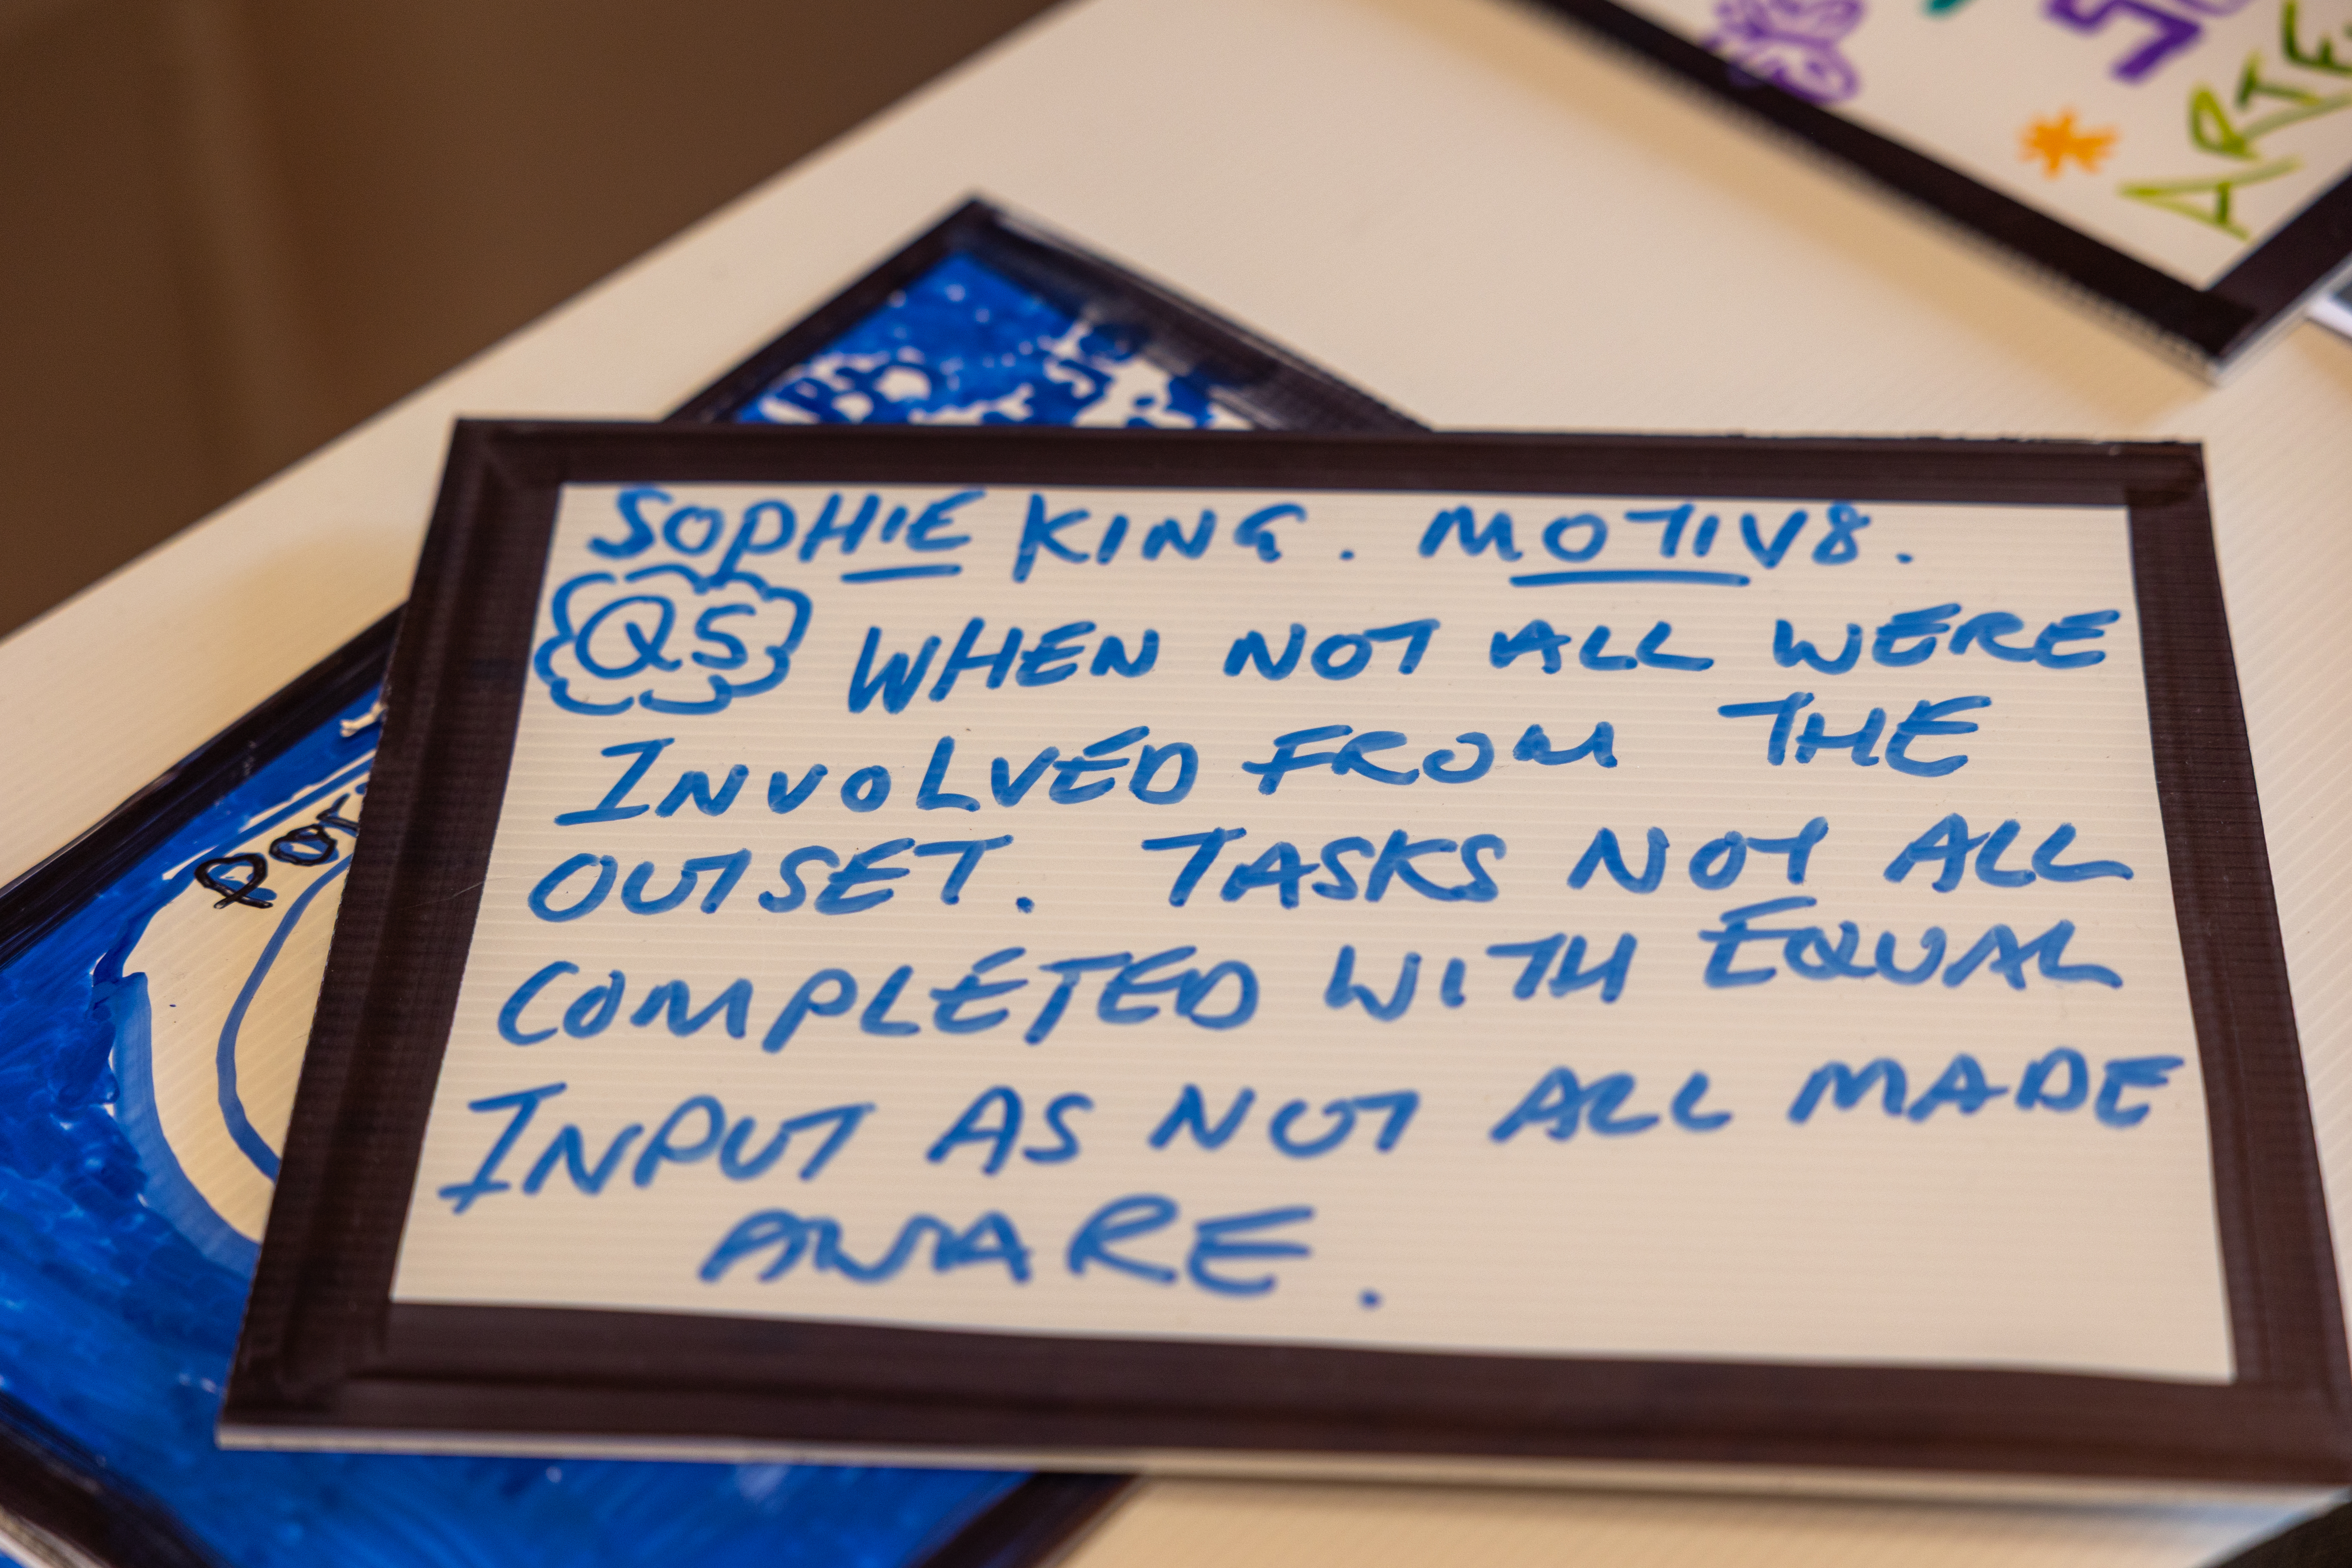 SOPHIE KING. MOTIV8.
Q5 WHEN NOT ALL WERE
INVOLVED FROM THE
OUTSET. TASKS NOT ALL
COMPLETED WITH EQUAL
INPUT AS NOT ALL MADE
AWARE.